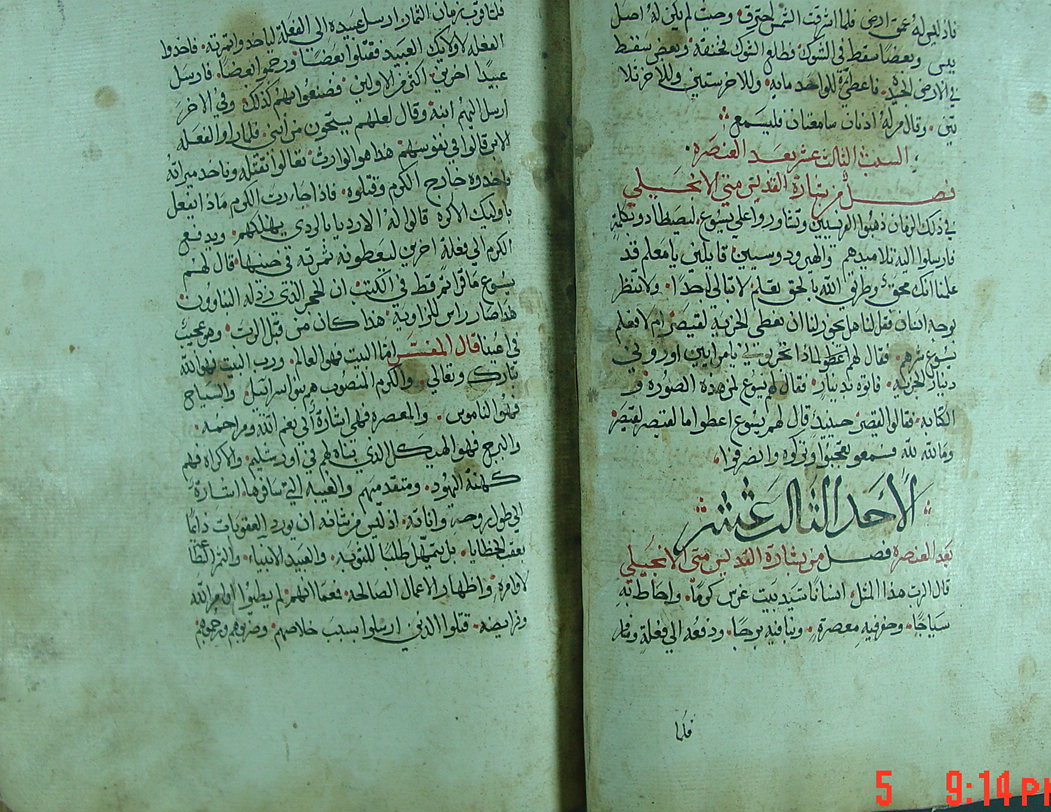 فاذ ليس له عمق ارض فلما اشرقت الشمس احترق وحيث لم يكن له اصل
يبس وبعضا سقط في الشوكة فطلع الشوك فخنقه وبعض سقط
في الارض الجيده فاعطي للواحد مايه وللاخر ستين وللاخر ثلا
ثين وقال من له اذنان سامعتان فليسمع
السبت الثالث عشر بعد العنصره
فصل من بشارة القديس متي الانجيلي
في ذلك الزمان ذهبوا الفريسيين وتشاوروا علي يسوع ليصيطادوه بكلمة
فارسلوا اليه تلاميذهم والهيرودوسيين قايلين يا معلم قد
علمنا انك محق وطريق الله بالحق تعلم لا تبالي احدا ولا تنظر
بوجه انسان فقل لنا هل يجوز لنا ان نعطي الجزية لقيصر ام لا فعلم
يسوع شرهم فقال لهم لماذا تجربوني يا مرايين اوروني
دينار الجزيه فاتوه بدينار فقال لهم يسوع لمن هذه الصورة و
الكتابه فقالوا لقيصر حينيذ قال لهم يسوع اعطوا ما لقيصر لقيصر
وما لله لله فسمعو فعجبوا وتركوه وانصرفوا
الاحد الثالث عشر
بعد العنصره فصل من بشارة القديس متي الانجيلي
قال الرب هذا المثل انسانا سيد بيت غرس كرما واحاط به
سياجا وحفر فيه معصرة وبنا فيه برجا ودفعه الي فعلة وسافر
فلما
فلما قرب زمان الثمار ارسل عبيده الي الفعلة لياخذوا ثمرته فاخذوا
الفعله لاوليك العبيد فقتلوا بعضا ورجموا بعضا فارسل
عبيدا اخرين اكثر من الاولين فصنعوا بهم كذلك وفي الاخر
ارسل اليهم ابنه وقال لعلهم يستحون من ابني فلما راوا الفعله
الابن قالوا في نفوسهم هذا هو الوارث تعالوا نقتله وناخذ ميراثه
فاخذوه خارج الكرم وقتلوه فاذا جاء رب الكرم ماذا يفعل
باوليك الاكرة قالوا له الاردياء بالردي يهلكهم ويدفع
الكرم الي فعلة اخرين ليعطونه ثمرته في حينها قال لهم
يسوع ما قراتم قط في الكتب ان الحجر الذي رذله البناوون
هذا صار راس للزاوية هذا كان من قبل الرب وهو عجيب
في عيننا قال المفسر اما البيت فهو العالم ورب البيت فهو الله
تبارك وتعالي والكرم المنصوب هم بنو اسراييل والسياج
فهو الناموس والمعصره فهي اشارة الي نعم الله ومراحمه
والبرج فهو الهيكل الذي بناه لهم في اورشليم والاكراه فهم
كهنة اليهود ومتقدميهم والغيبة التي سافرها اشارة
الي طول روحه واناته اذ ليس من شانه ان يورد العقوبات دايما
عقب الخطايا بل يتمهل طلبا للتوبه والعبيد الانبياء والثمر الطاعة
لاوامره واظهار الاعمال الصالحه فعما انهم لم يطيعوا اوامر الله
وفرايضه قتلوا الذين ارسلوا بسبب خلاصهم وضربوهم ورجموهم
5 9:14 PM